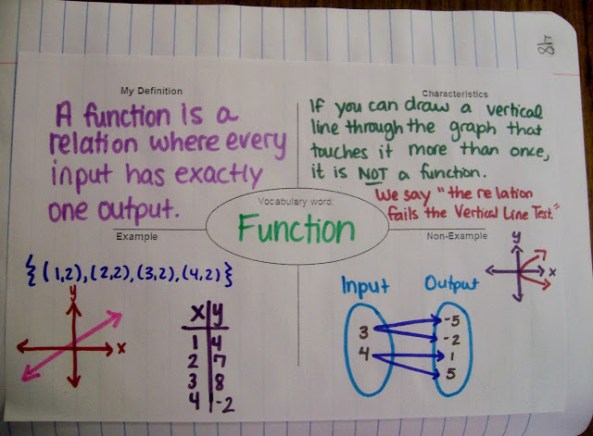 My Definition
A function is a
relation where every
input has exactly
one output.
Characteristics
If you can draw a vertical
line through the graph that
touches it more than once,
it is NOT a function.
We say "the relation
fails the Vertical Line Test."
Vocabulary word:
Function
Example
{(1,2),(2,2),(3,2),(4,2)}
y
x
x y
1 4
2 7
3 8
4 -2
Non-Example
y
x
Input Output
3
4
-5
-2
1
5